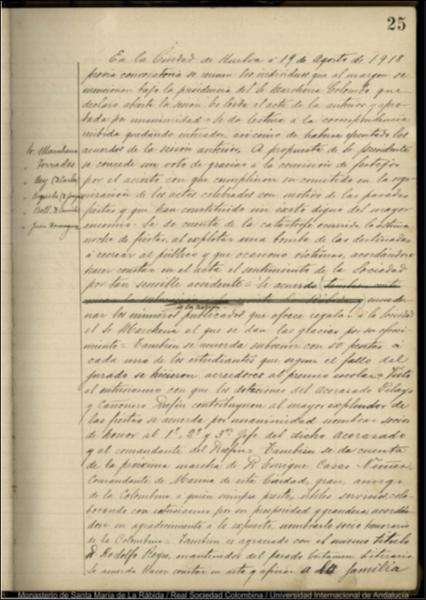 25
En la Ciudad de Huelva a 19 de Agosto de 1918
previa convocatoria se reunen los individuos que al margen se
mencionan bajo la presidencia del Sr Marchena Colombo que
declaró abierta la sesión. Es leida el acta de la anterior y apro-
bada por unanimidad. Se da lectura a la correspondencia
recibida quedando enterados, asi como de haberse ejecutado los
acuerdos de la sesión anterior. A propuesta de Sr Presidente
se concede un voto de gracias a la comisión de festejos
por el acierto con que cumplieron su cometido en la orga-
nización de los actos celebrados con motivo de las pasadas
fiestas y que han constituido un éxito digno del mayor
encomio. Se da cuenta de la catástrofe ocurrida la última
noche de fiestas, al explotar una bomba de las destinadas
a recrear al público y que ocasionó víctimas, acordandose
hacer constar en el acta el sentimiento de la Sociedad
por tan sensible accidente. Se acuerda
de La Rabida
nar los números publicados que ofrece regalar a la Sociedad
el Sr Marchena al que se dan las gracias por su ofreci-
miento. Tambien se acuerda subvenir con 50 pesetas a
cada uno de los estudiantes que segun el fallo del
jurado se hicieron acreedores al premio escolar. Visto
el entusiasmo con que las dotaciones del acorazado Pelayo
y Cañonero Delfin contribuyeron al mayor explendor de
las fiestas se acuerda por unanimidad nombrar socios
de honor al 1º, 2º y 3er Jefe del dicho acorazado
y al comandante del Delfin. Tambien se da cuenta
de la proxima marcha de D. Enrique Casas
Comandante de Marina de esta Ciudad, gran amigo
de la Colombina a quien siempre prestó utiles servicios cola-
borando con entusiasmo por su prosperidad y grandeza, acordán-
dose en agradecimiento a lo expuesto nombrarle socio honorario
de la Colombina. Tambien es agraciado con el mismo titulo
D. Rodolfo Reyes, mantenedor del pasado Certamen Literario
Se acuerda hacer constar en acta y oficiar a la familia
Sr. Marchena
" Terrades
Monasterio de Santa María de La Rábida / Real Sociedad Colombina / Universidad Internacional de Andalucía